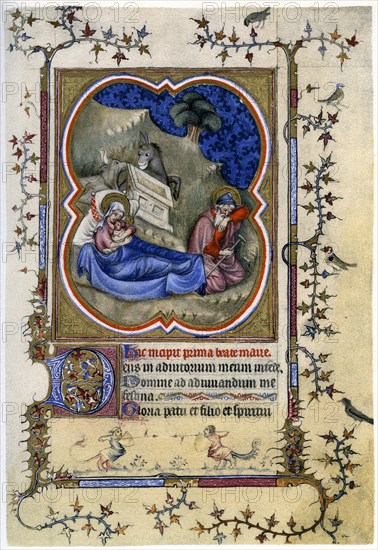 Hic incipit prima beate marie.
Deus in adiutorium meum intende.
Domine ad adiuvandum me
festina.
Gloria patri et filio et spiritui